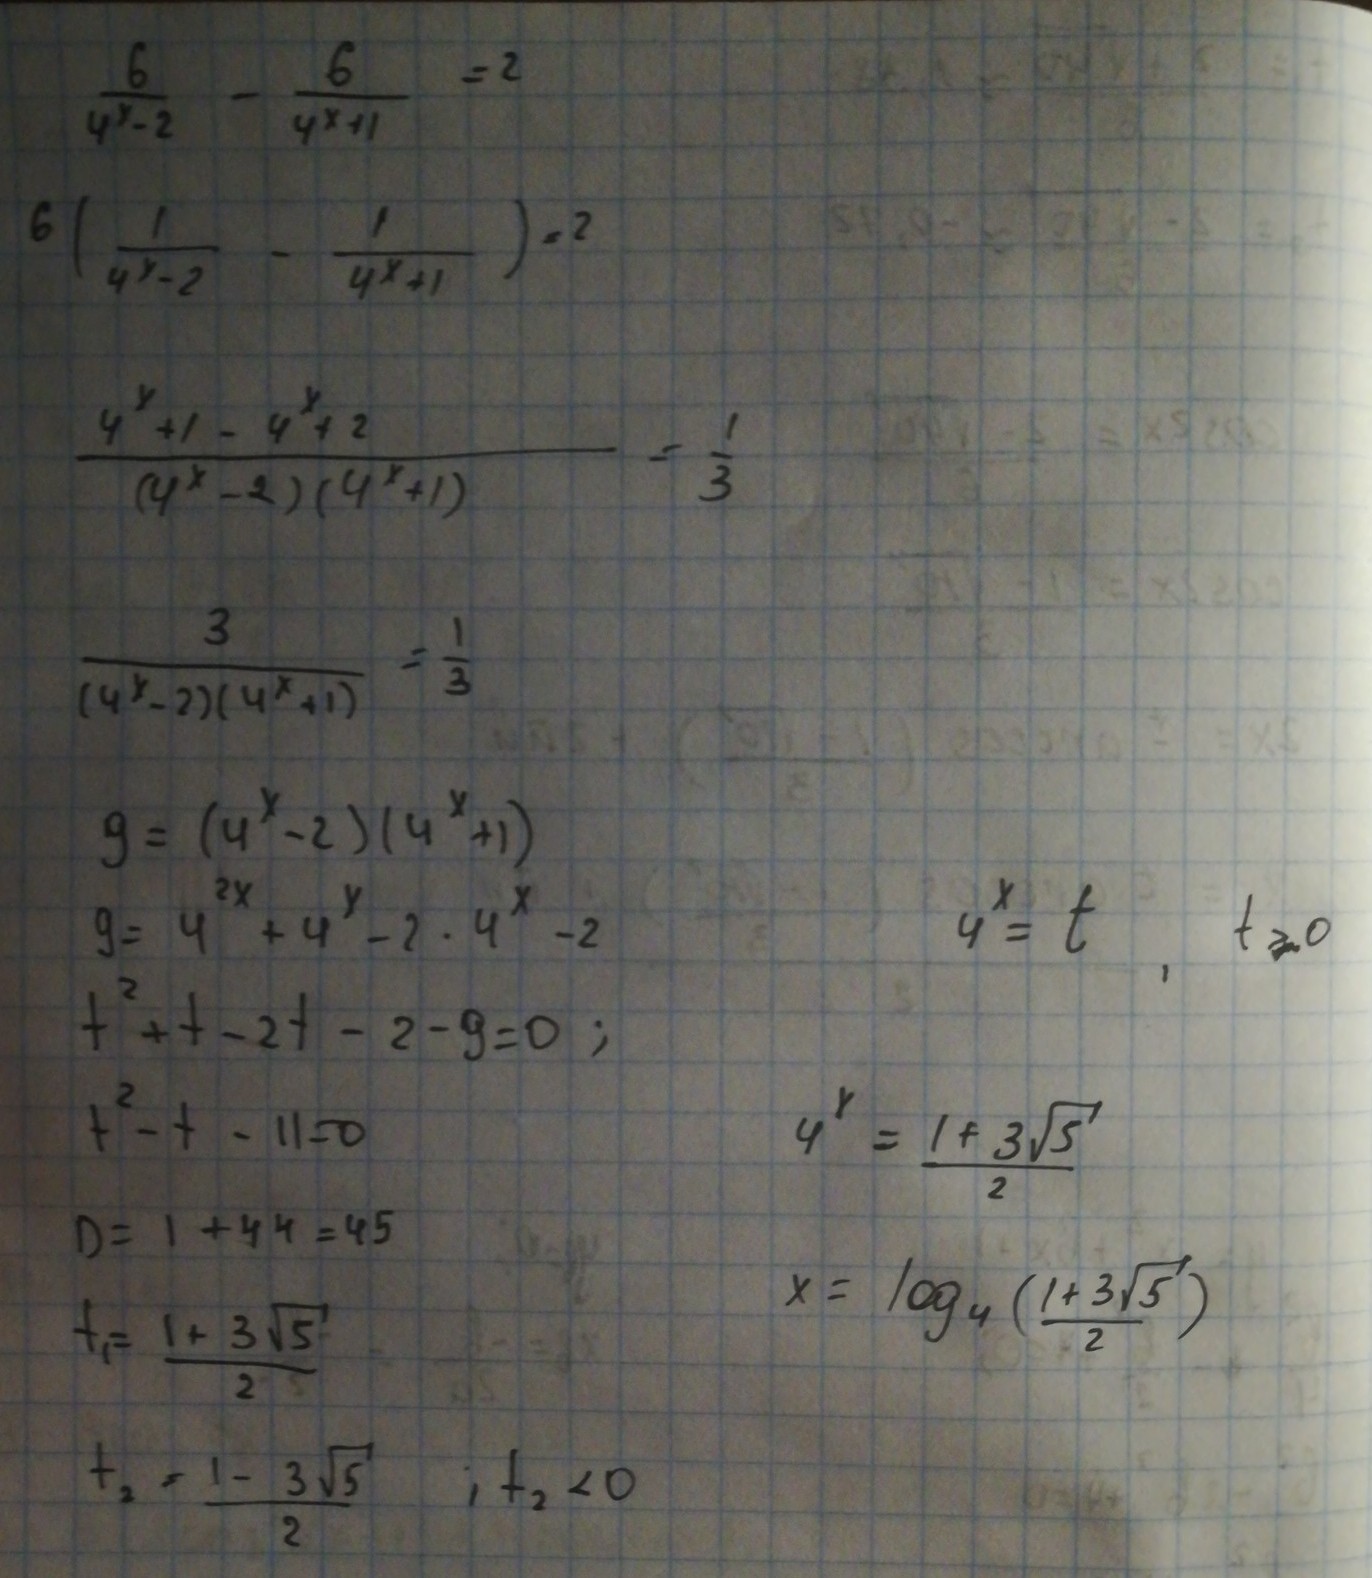 6/(4^x-2) - 6/(4^x+1) = 2
6(1/(4^x-2) - 1/(4^x+1)) = 2
(4^x+1 - 4^x+2)/((4^x-2)(4^x+1)) = 1/3
3/((4^x-2)(4^x+1)) = 1/3
9 = (4^x-2)(4^x+1)
9 = 4^2x + 4^x - 2 · 4^x - 2
4^x = t , t > 0
t^2 + t - 2t - 2 - 9 = 0 ;
t^2 - t - 11 = 0
D = 1 + 44 = 45
t₁ = (1 + 3√5)/2
t₂ = (1 - 3√5)/2 ; t₂ < 0
4^x = (1 + 3√5)/2
x = log₄((1+3√5)/2)